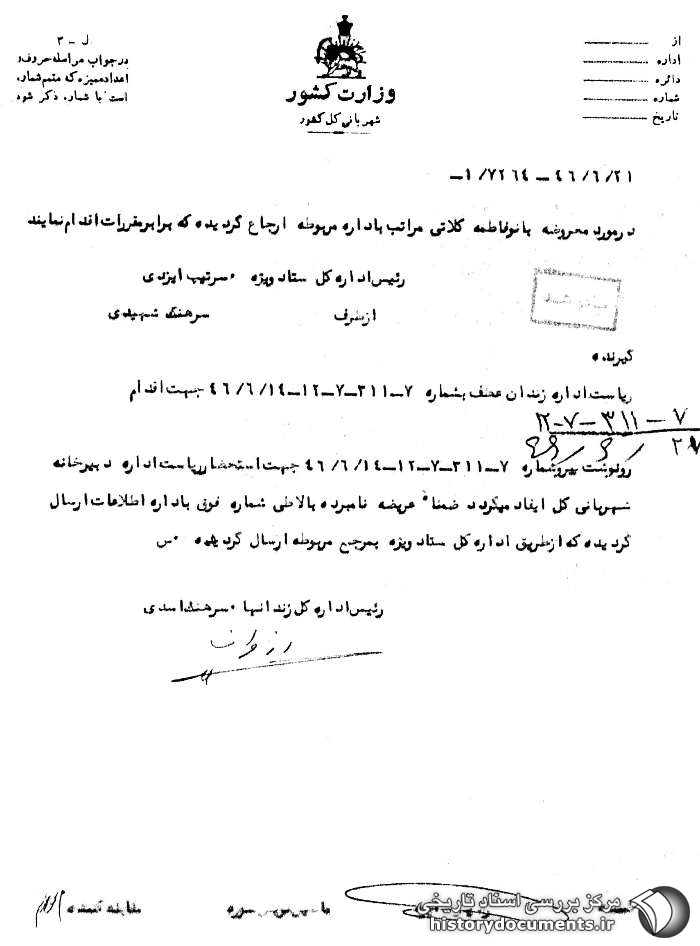 ل - ۳
در جواب مراسله حروف و
اعداد ممیزه که متمم شماره
است با شماره ذکر شود
وزارت کشور
شهربانی کل کشور
از
اداره
دائره
شماره
تاریخ
۴۶/۶/۲۱ - ۱/۷۲۶۴-
در مورد معروضه بانو فاطمه کلاتی مراتب باداره مربوطه ارجاع گردیده که برابر مقررات اقدام نمایند
رئیس اداره کل ستاد ویژه ۰ سرتیپ ایزدی
از طرف سرهنگ شهیدی
گیرنده
ریاست اداره زندان عطف بشماره ۷-۳۱۱-۷-۱۲-۴۶/۶/۱۴ جهت اقدام
۷-۳۱۱-۷-۱۲
رونوشت پیرو شماره ۷-۳۱۱-۷-۱۲-۴۶/۶/۱۴ جهت استحضار ریاست اداره دبیرخانه
شهربانی کل ایفاد میگردد ضمناً عریضه نامبرده بالا طی شماره فوق باداره اطلاعات ارسال
گردیده که از طریق اداره کل ستاد ویژه بمرجع مربوطه ارسال گردیده ۰ س
رئیس اداره کل زندانها ۰ سرهنگ اسدی
مقابله کننده
مرکز بررسی اسناد تاریخی
historydocuments.ir